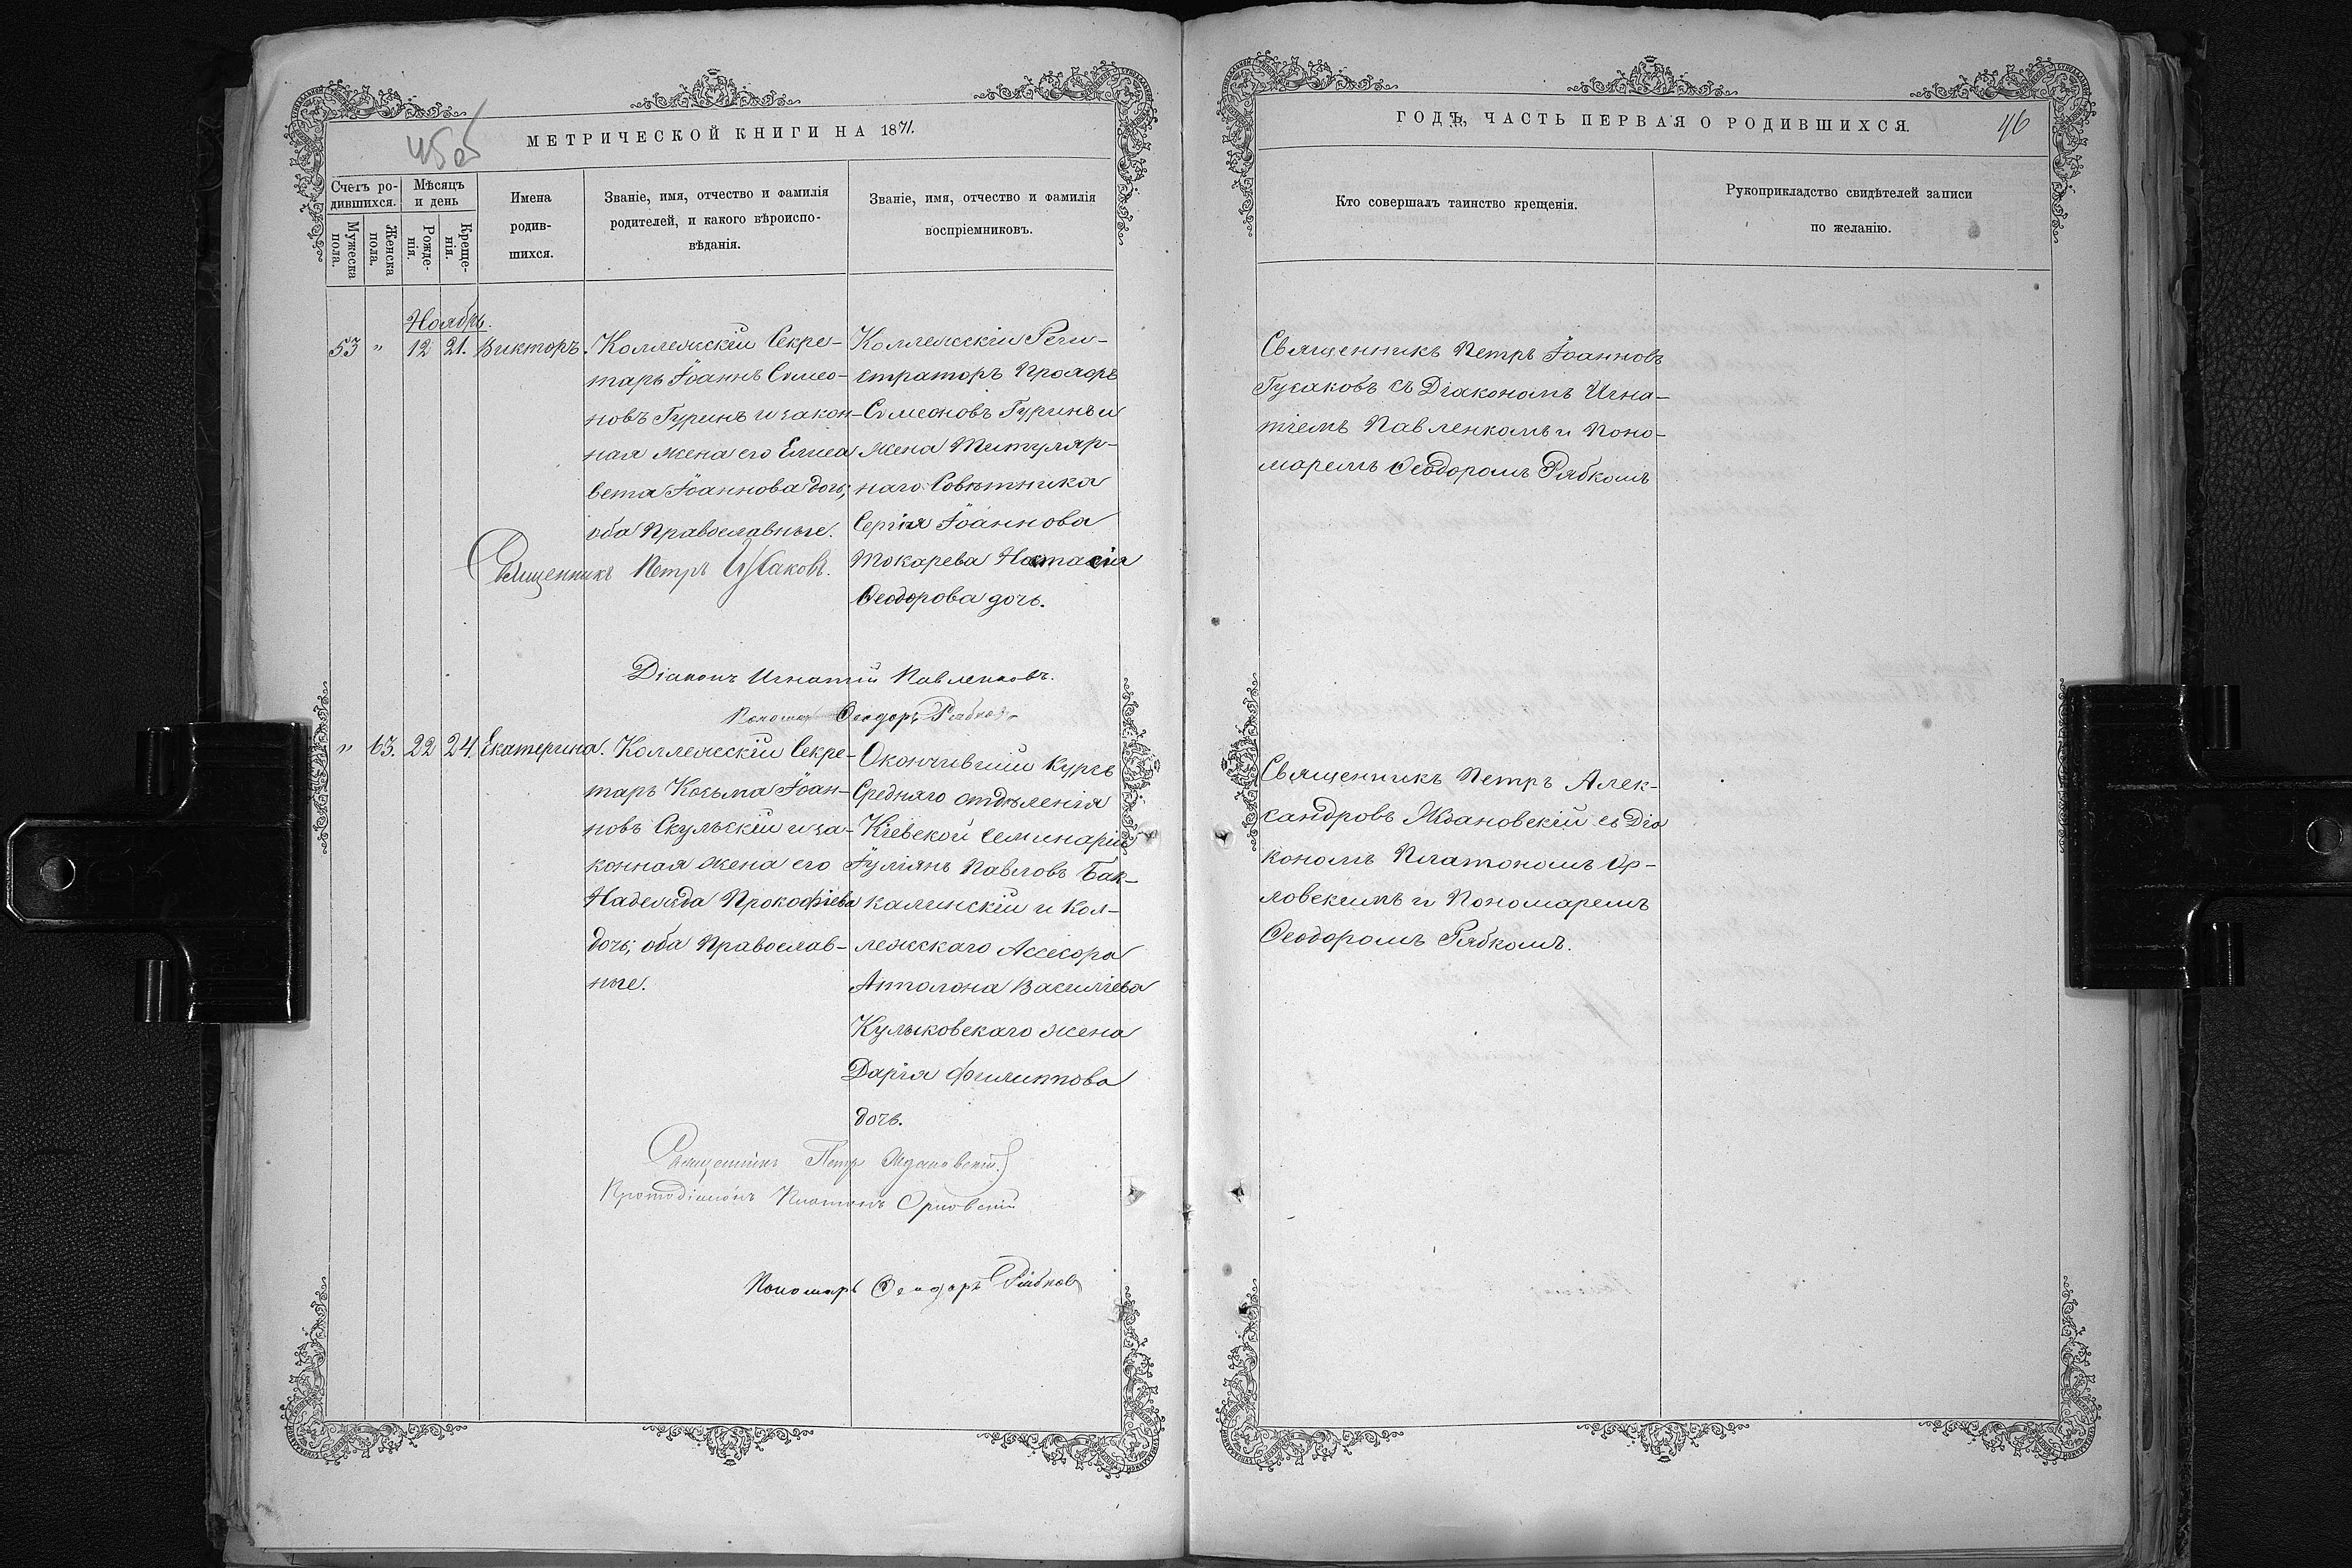 45 об
МЕТРИЧЕСКОЙ КНИГИ НА 1871.
Счетъ ро-
дившихся.
Мужеска
пола.
Женска
пола.
Мѣсяцъ
и день
Рожде-
нія.
Креще-
нія.
Имена
родив-
шихся.
Званіе, имя, отчество и фамилія
родителей, и какого вѣроиспо-
вѣданія.
Званіе, имя, отчество и фамилія
воспріемниковъ.
Ноябрь.
53 " 12 21. Викторъ.
Коллежскій Секре-
тарь Іоаннъ Симео-
новъ Гуринъ и закон-
ная жена его Елиса
вета Іоаннова дочь;
оба Православные.
Коллежскій Реги-
страторъ Прохоръ
Симеоновъ Гуринъ и
жена Титуляр-
наго Совѣтника
Сергія Іоаннова
Токарева Настасія
Ѳеодорова дочь.
Священникъ Петръ Гусаковъ.
Діаконъ Игнатій Павленковъ.
Пономарь Ѳеодоръ Рябковъ
" 63. 22 24. Екатерина.
Коллежскій Секре-
тарь Козьма Іоан-
новъ Скульскій и за-
конная жена его
Надежда Прокофіева
дочь; оба Православ-
ные.
Окончившій курсъ
Средняго отдѣленія
Кіевской семинаріи
Іуліянъ Павловъ Бак-
калинскій и Кол-
лежскаго Ассесора
Апполона Васильева
Кулыковскаго жена
Дарія Филиппова
дочь.
Священникъ Петр Ждановскій.
Протодіаконъ Платонъ Орловскій
Пономарь Ѳеодоръ Рябков
ГОДЪ, ЧАСТЬ ПЕРВАЯ О РОДИВШИХСЯ.
46
Кто совершалъ таинство крещенія.
Рукоприкладство свидѣтелей записи
по желанію.
Священникъ Петръ Іоанновъ
Гусаковъ съ Діакономъ Игна-
тіемъ Павленкомъ и Поно-
маремъ Ѳеодоромъ Рябкомъ
Священникъ Петръ Алек-
сандровъ Ждановскій съ Діа
кономъ Платономъ Ор-
ловскимъ и Пономаремъ
Ѳеодоромъ Рябкомъ.